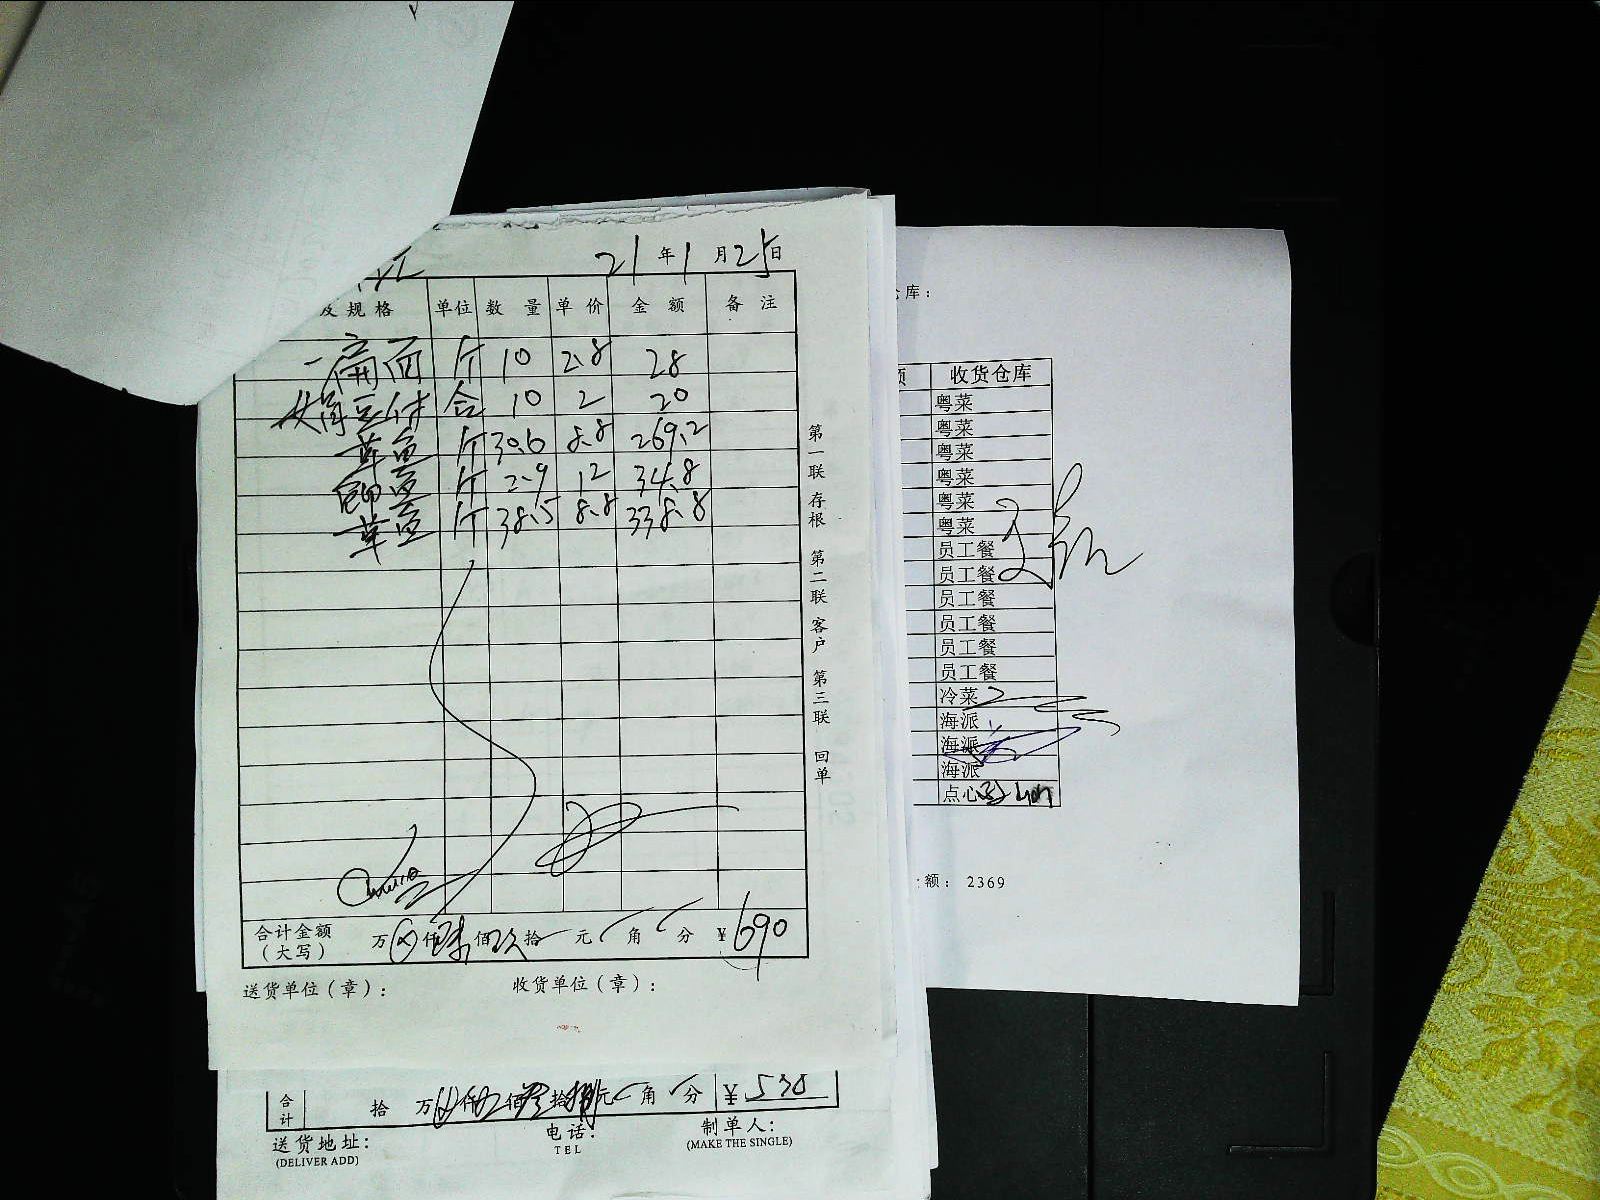 21年1月25日
及规格 单位 数量 单价 金额 备注
面 斤 10 2.8 28
豆付 合 10 2 20
草鱼 斤 30.6 8.8 269.2
鱼 斤 2.9 12 34.8
草鱼 斤 38.5 8.8 338.8
第一联 存根 第二联 客户 第三联 回单
合计金额（大写） 万 仟 陆 佰 玖 拾 元 角 分 ¥690
送货单位（章）： 收货单位（章）：
合计 拾 万 仟 佰 拾 元 角 分 ¥
送货地址： 电话： 制单人：
(DELIVER ADD) TEL (MAKE THE SINGLE)
库：
额 收货仓库
粤菜
粤菜
粤菜
粤菜
粤菜
粤菜
员工餐
员工餐
员工餐
员工餐
员工餐
员工餐
冷菜
海派
海派
海派
点心
额：2369